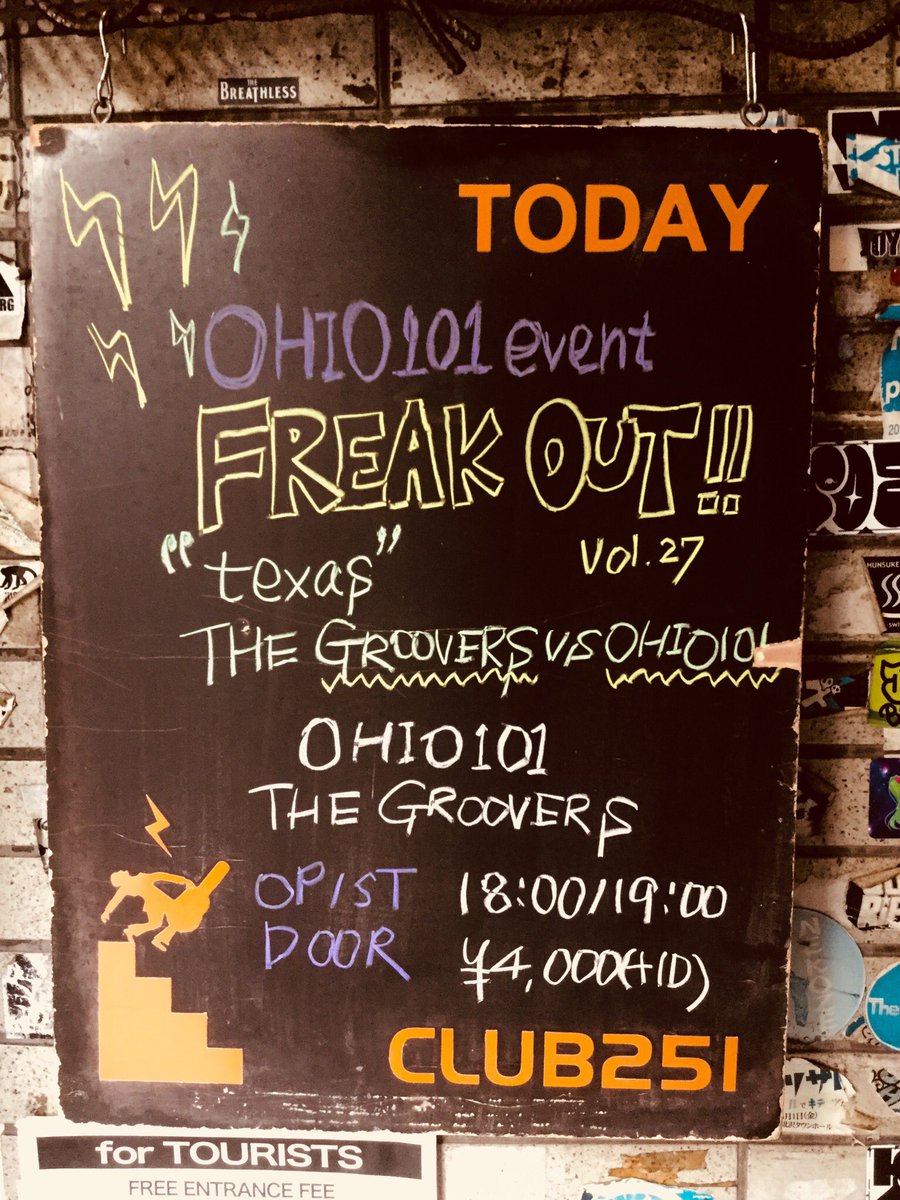 THE BREATHLESS
TODAY
OHIO101 event
FREAK OUT!!
"texas"
Vol.27
THE GROOVERS VS OHIO101
OHIO101
THE GROOVERS
OP/ST 18:00/19:00
DOOR ¥4,000(+1D)
CLUB251
for TOURISTS
FREE ENTRANCE FEE
HUNSUKE
The